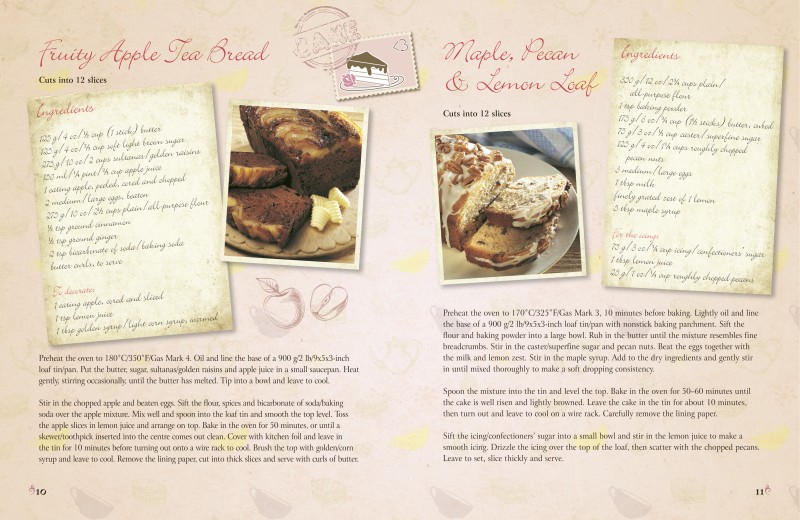 Fruity Apple Tea Bread
Cuts into 12 slices
CAKE
Ingredients
125 g/ 4 oz/ ½ cup (1 stick) butter
125 g/ 4 oz/ ⅔ cup soft light brown sugar
275 g/ 10 oz/ 2 cups sultanas/ golden raisins
150 ml/ ¼ pint/ ⅔ cup apple juice
1 eating apple, peeled, cored and chopped
2 medium/ large eggs, beaten
275 g/ 10 oz/ 2½ cups plain/ all-purpose flour
½ tsp ground cinnamon
½ tsp ground ginger
2 tsp bicarbonate of soda/ baking soda
butter curls, to serve
To decorate:
1 eating apple, cored and sliced
1 tsp lemon juice
1 tbsp golden syrup/ light corn syrup, warmed
Preheat the oven to 180˚C/350˚F/Gas Mark 4. Oil and line the base of a 900 g/2 lb/9x5x3-inch
loaf tin/pan. Put the butter, sugar, sultanas/golden raisins and apple juice in a small saucepan. Heat
gently, stirring occasionally, until the butter has melted. Tip into a bowl and leave to cool.
Stir in the chopped apple and beaten eggs. Sift the flour, spices and bicarbonate of soda/baking
soda over the apple mixture. Mix well and spoon into the loaf tin and smooth the top level. Toss
the apple slices in lemon juice and arrange on top. Bake in the oven for 50 minutes, or until a
skewer/toothpick inserted into the centre comes out clean. Cover with kitchen foil and leave in
the tin for 10 minutes before turning out onto a wire rack to cool. Brush the top with golden/corn
syrup and leave to cool. Remove the lining paper, cut into thick slices and serve with curls of butter.
10
Maple, Pecan
& Lemon Loaf
Cuts into 12 slices
Ingredients
350 g/ 12 oz/ 2¾ cups plain/
all-purpose flour
1 tsp baking powder
175 g/ 6 oz/ ¾ cup (1½ sticks) butter, cubed
75 g/ 3 oz/ ⅓ cup caster/ superfine sugar
125 g/ 4 oz/ 1¼ cups roughly chopped
pecan nuts
3 medium/ large eggs
1 tbsp milk
finely grated zest of 1 lemon
5 tbsp maple syrup
For the icing:
75 g/ 3 oz/ ¾ cup icing/ confectioners' sugar
1 tbsp lemon juice
25 g/ 1 oz/ ¼ cup roughly chopped pecans
Preheat the oven to 170˚C/325˚F/Gas Mark 3, 10 minutes before baking. Lightly oil and line
the base of a 900 g/2 lb/9x5x3-inch loaf tin/pan with nonstick baking parchment. Sift the
flour and baking powder into a large bowl. Rub in the butter until the mixture resembles fine
breadcrumbs. Stir in the caster/superfine sugar and pecan nuts. Beat the eggs together with
the milk and lemon zest. Stir in the maple syrup. Add to the dry ingredients and gently stir
in until mixed thoroughly to make a soft dropping consistency.
Spoon the mixture into the tin and level the top. Bake in the oven for 50–60 minutes until
the cake is well risen and lightly browned. Leave the cake in the tin for about 10 minutes,
then turn out and leave to cool on a wire rack. Carefully remove the lining paper.
Sift the icing/confectioners' sugar into a small bowl and stir in the lemon juice to make a
smooth icing. Drizzle the icing over the top of the loaf, then scatter with the chopped pecans.
Leave to set, slice thickly and serve.
11